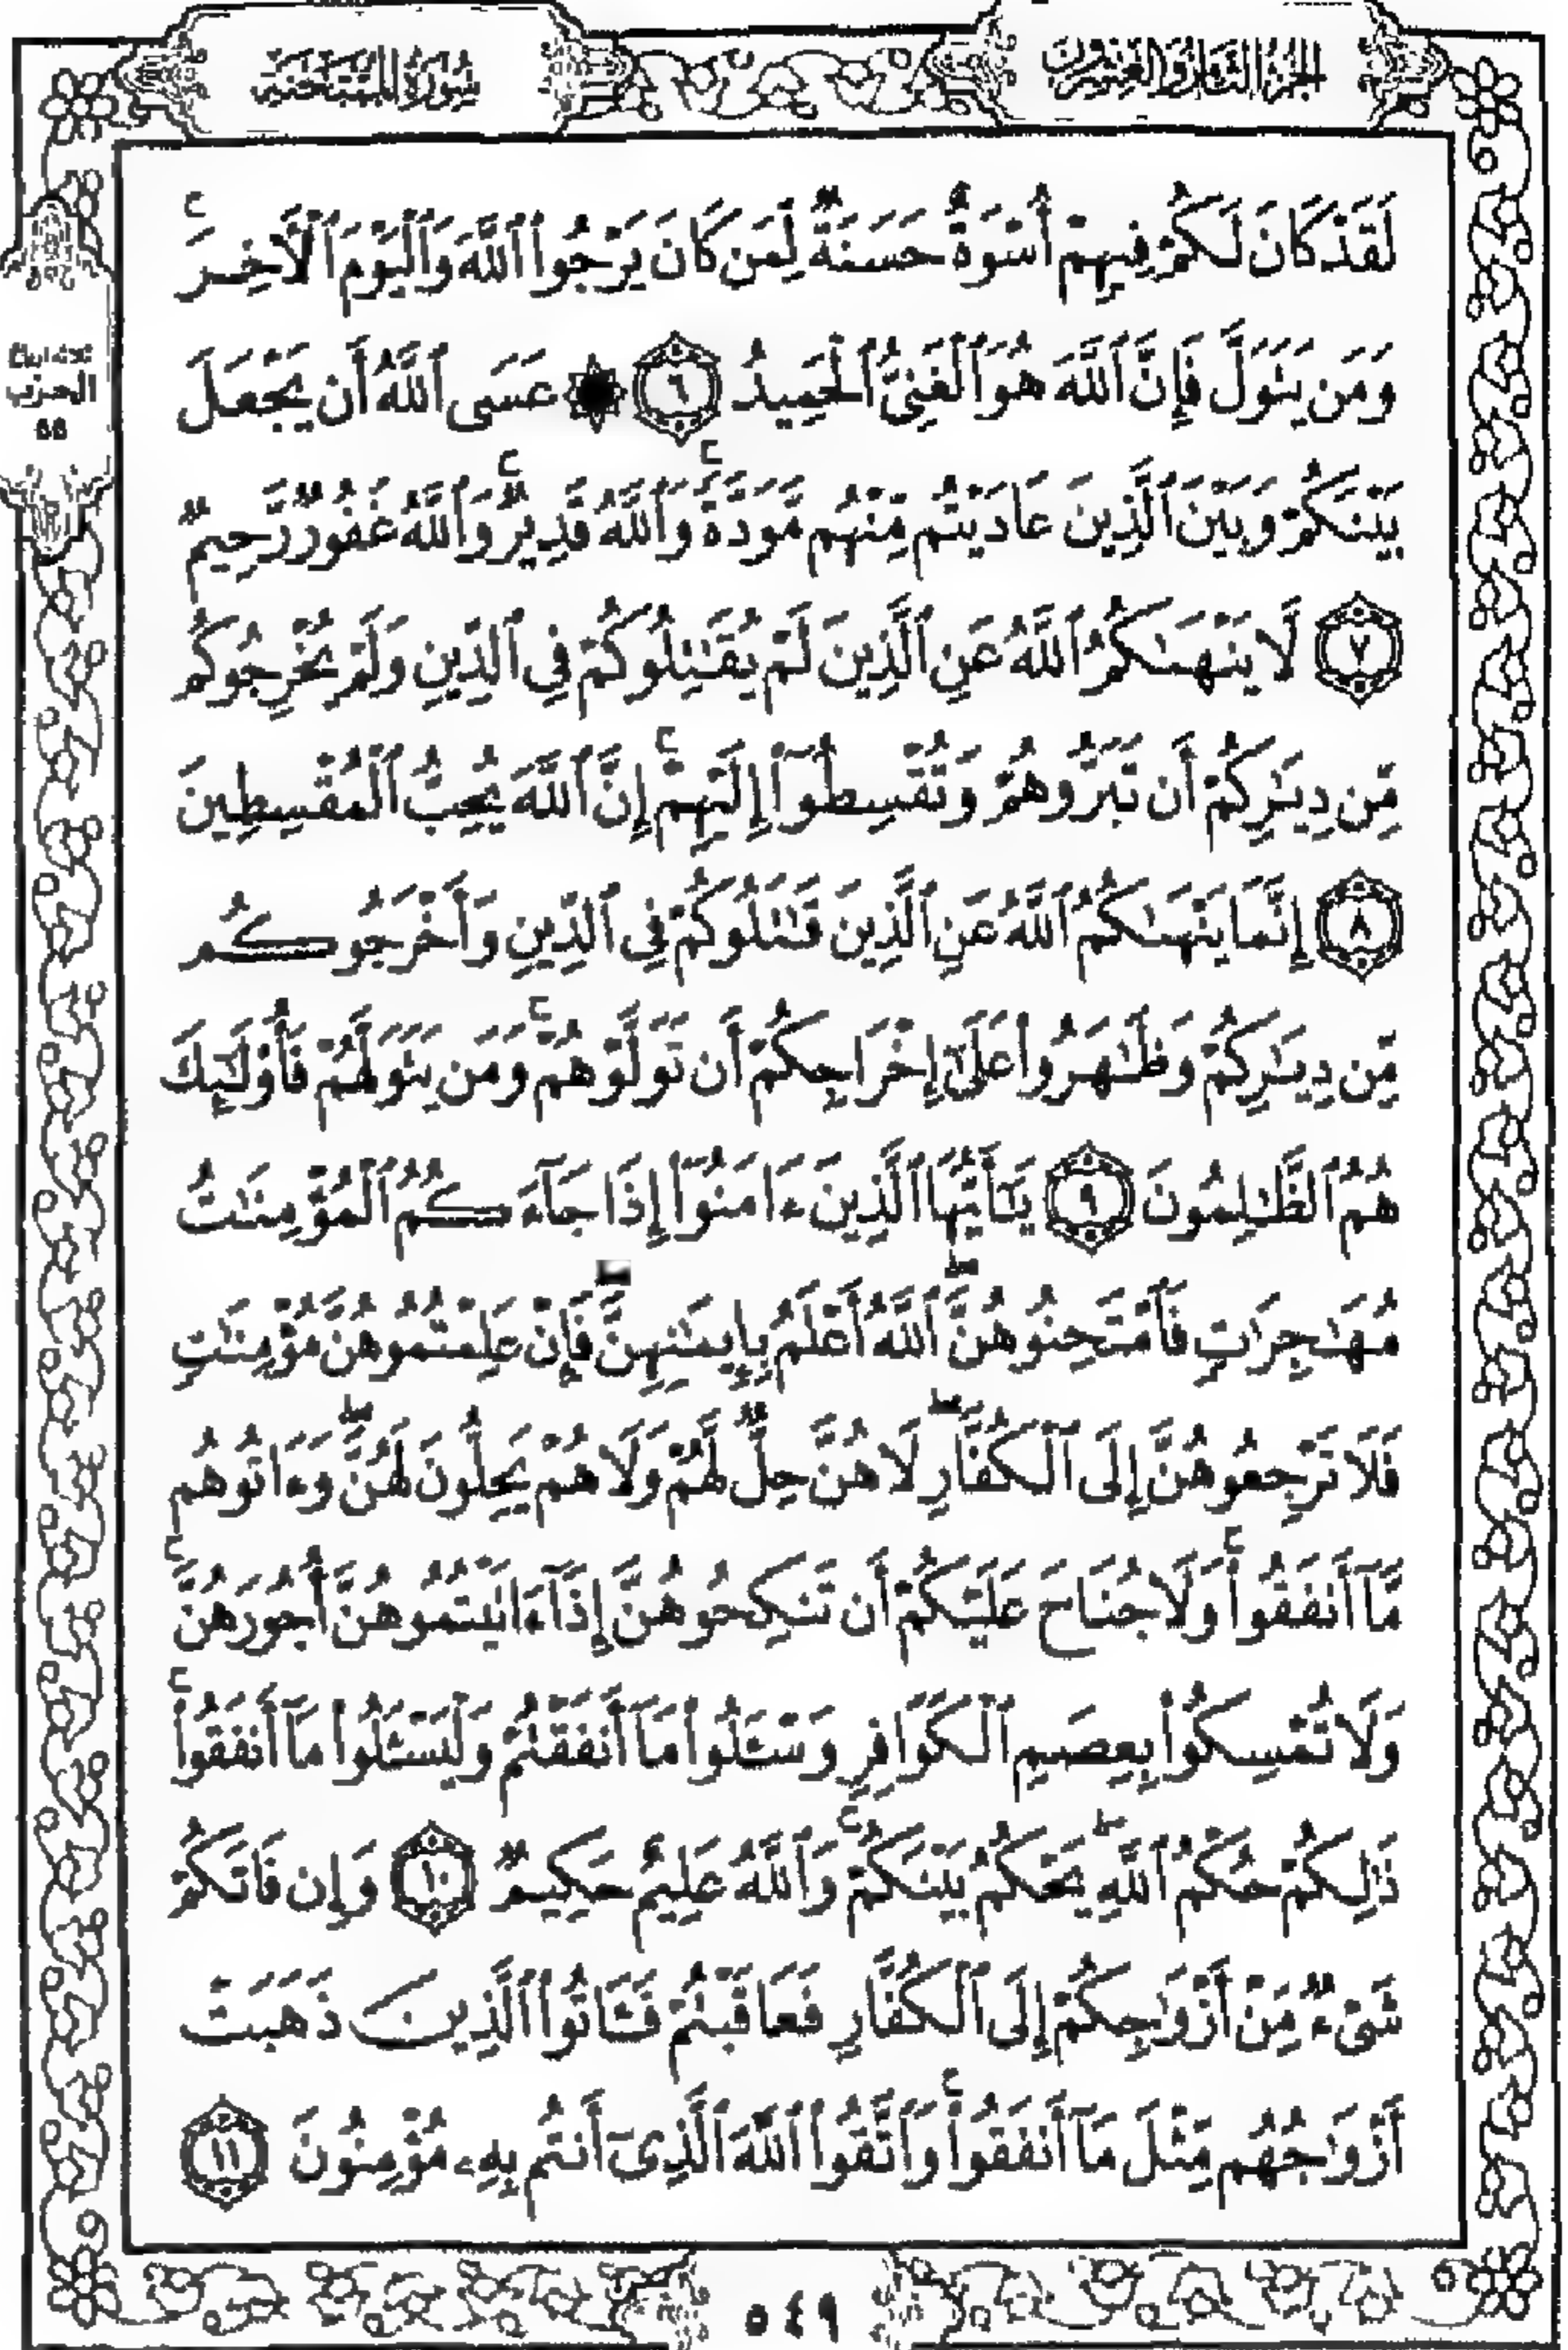 الجزء الثامن والعشرون
سورة الممتحنة
لَقَدْ كَانَ لَكُمْ فِيهِمْ أُسْوَةٌ حَسَنَةٌ لِّمَن كَانَ يَرْجُوا۟ ٱللَّهَ وَٱلْيَوْمَ ٱلْءَاخِرَ ۚ
وَمَن يَتَوَلَّ فَإِنَّ ٱللَّهَ هُوَ ٱلْغَنِىُّ ٱلْحَمِيدُ ٦ ۞ عَسَى ٱللَّهُ أَن يَجْعَلَ
بَيْنَكُمْ وَبَيْنَ ٱلَّذِينَ عَادَيْتُم مِّنْهُم مَّوَدَّةً ۚ وَٱللَّهُ قَدِيرٌ ۚ وَٱللَّهُ غَفُورٌ رَّحِيمٌ
٧ لَّا يَنْهَىٰكُمُ ٱللَّهُ عَنِ ٱلَّذِينَ لَمْ يُقَـٰتِلُوكُمْ فِى ٱلدِّينِ وَلَمْ يُخْرِجُوكُم
مِّن دِيَـٰرِكُمْ أَن تَبَرُّوهُمْ وَتُقْسِطُوٓا۟ إِلَيْهِمْ ۚ إِنَّ ٱللَّهَ يُحِبُّ ٱلْمُقْسِطِينَ
٨ إِنَّمَا يَنْهَىٰكُمُ ٱللَّهُ عَنِ ٱلَّذِينَ قَـٰتَلُوكُمْ فِى ٱلدِّينِ وَأَخْرَجُوكُم
مِّن دِيَـٰرِكُمْ وَظَـٰهَرُوا۟ عَلَىٰٓ إِخْرَاجِكُمْ أَن تَوَلَّوْهُمْ ۚ وَمَن يَتَوَلَّهُمْ فَأُو۟لَـٰٓئِكَ
هُمُ ٱلظَّـٰلِمُونَ ٩ يَـٰٓأَيُّهَا ٱلَّذِينَ ءَامَنُوٓا۟ إِذَا جَآءَكُمُ ٱلْمُؤْمِنَـٰتُ
مُهَـٰجِرَٰتٍ فَٱمْتَحِنُوهُنَّ ۖ ٱللَّهُ أَعْلَمُ بِإِيمَـٰنِهِنَّ ۖ فَإِنْ عَلِمْتُمُوهُنَّ مُؤْمِنَـٰتٍ
فَلَا تَرْجِعُوهُنَّ إِلَى ٱلْكُفَّارِ ۖ لَا هُنَّ حِلٌّ لَّهُمْ وَلَا هُمْ يَحِلُّونَ لَهُنَّ ۖ وَءَاتُوهُم
مَّآ أَنفَقُوا۟ ۚ وَلَا جُنَاحَ عَلَيْكُمْ أَن تَنكِحُوهُنَّ إِذَآ ءَاتَيْتُمُوهُنَّ أُجُورَهُنَّ ۚ
وَلَا تُمْسِكُوا۟ بِعِصَمِ ٱلْكَوَافِرِ وَسْـَٔلُوا۟ مَآ أَنفَقْتُمْ وَلْيَسْـَٔلُوا۟ مَآ أَنفَقُوا۟ ۚ
ذَٰلِكُمْ حُكْمُ ٱللَّهِ ۖ يَحْكُمُ بَيْنَكُمْ ۚ وَٱللَّهُ عَلِيمٌ حَكِيمٌ ١٠ وَإِن فَاتَكُمْ
شَىْءٌ مِّنْ أَزْوَٰجِكُمْ إِلَى ٱلْكُفَّارِ فَعَاقَبْتُمْ فَـَٔاتُوا۟ ٱلَّذِينَ ذَهَبَتْ
أَزْوَٰجُهُم مِّثْلَ مَآ أَنفَقُوا۟ ۚ وَٱتَّقُوا۟ ٱللَّهَ ٱلَّذِىٓ أَنتُم بِهِۦ مُؤْمِنُونَ ١١
الحزب
٥٤٩